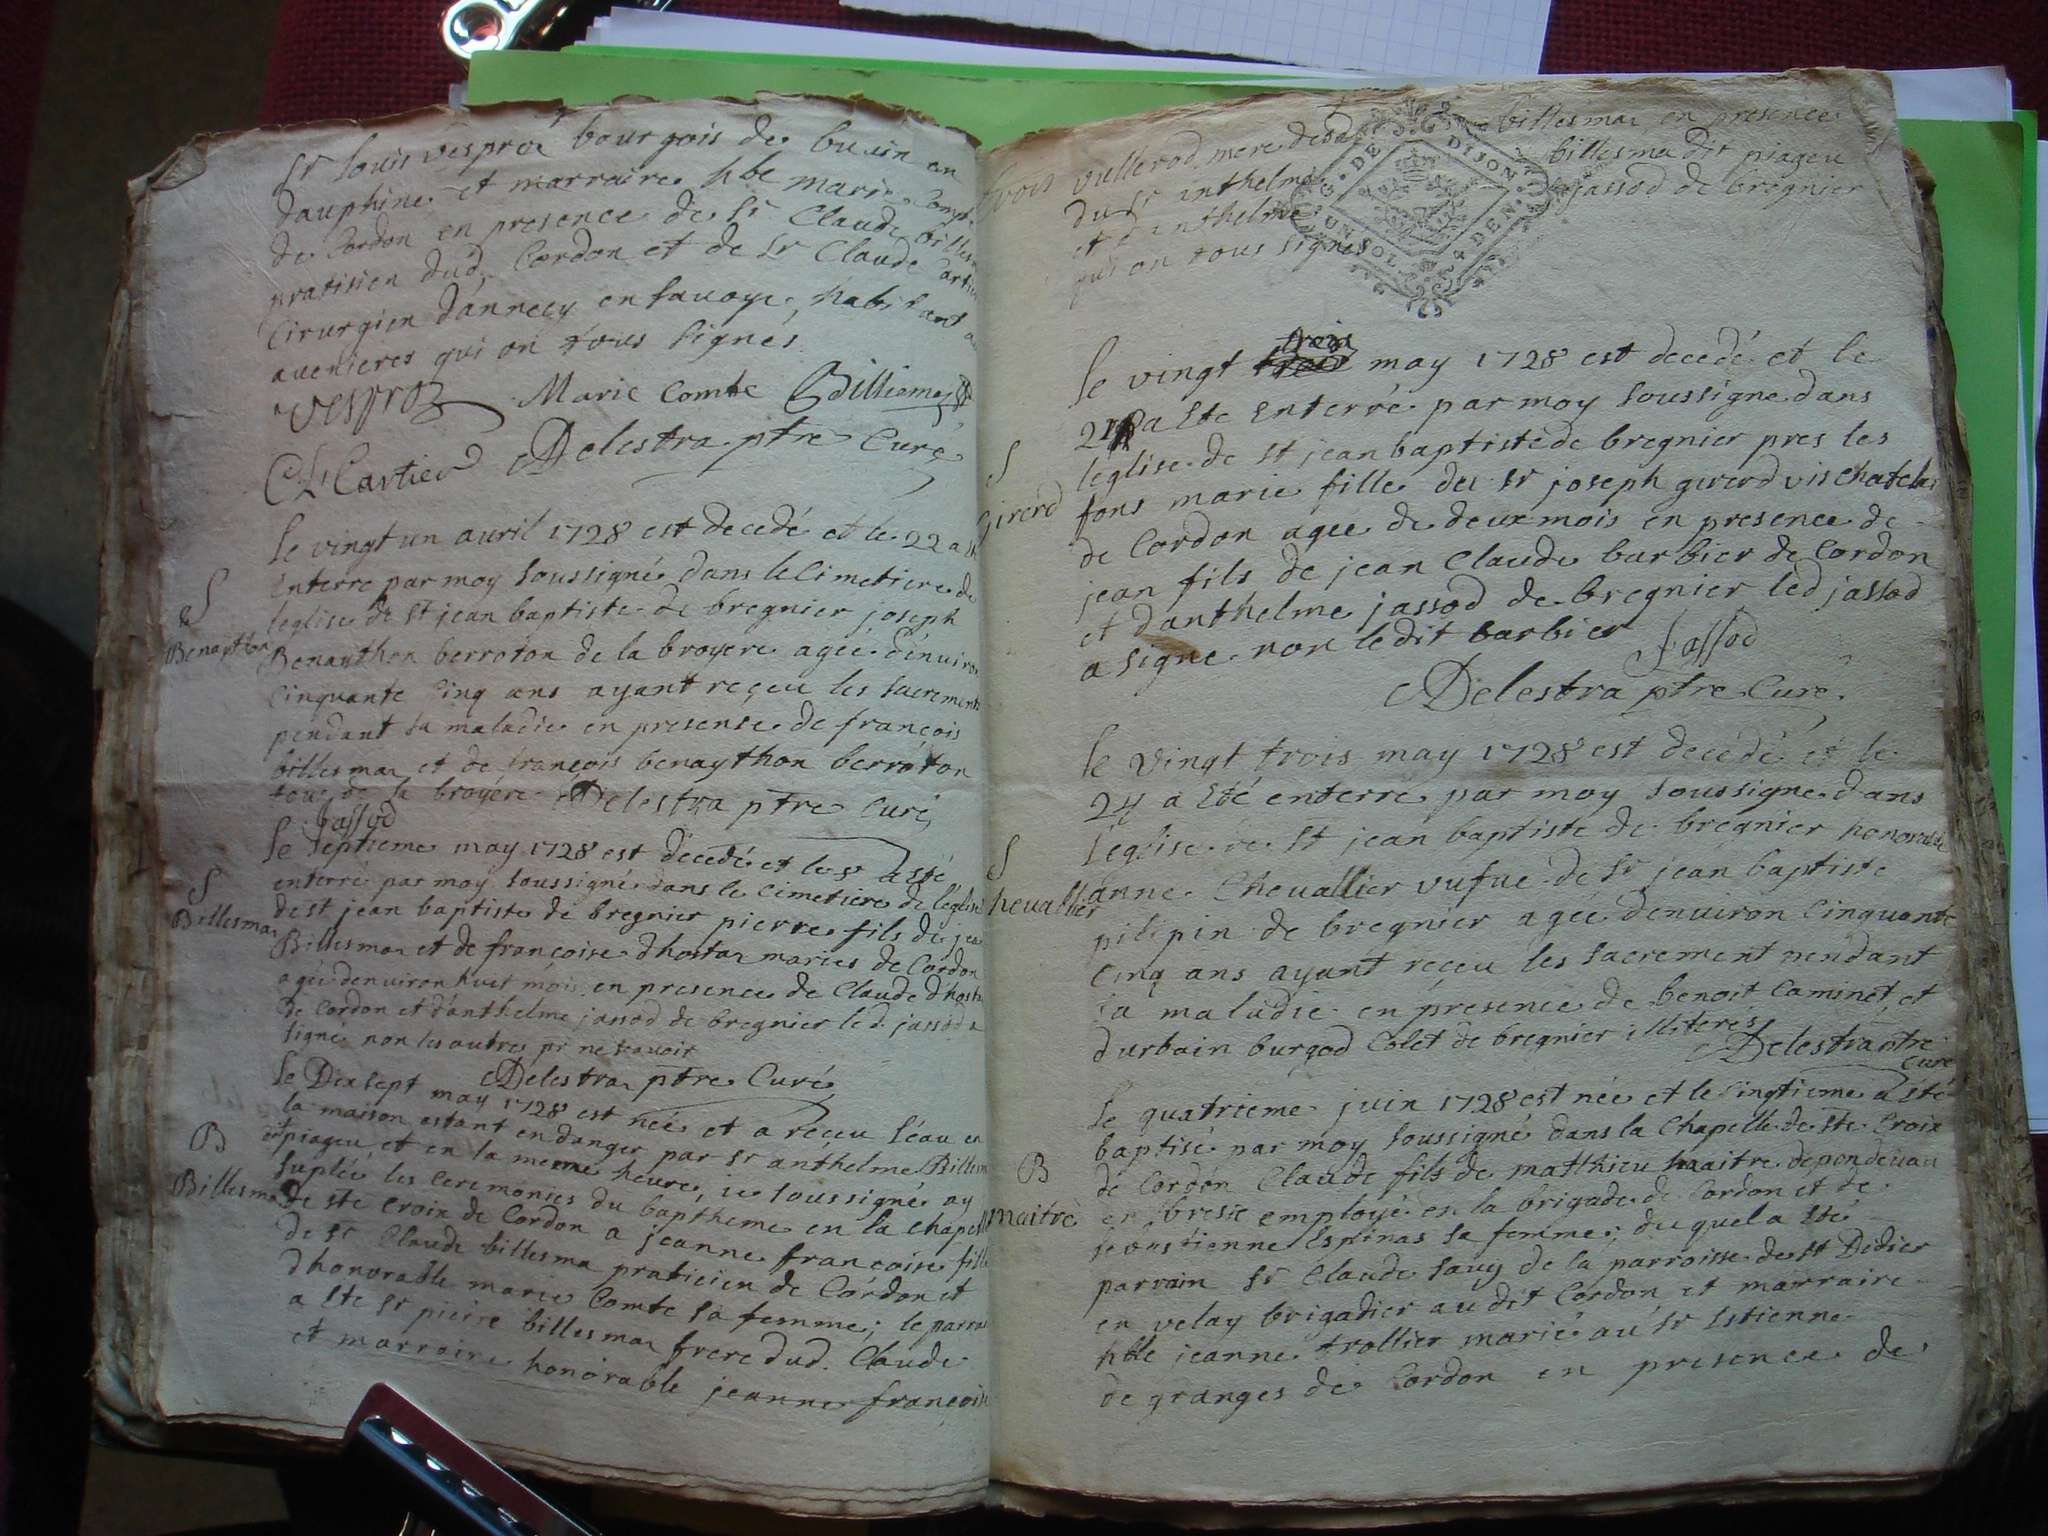 sr louis vesproz bourgois de buin en
dauphine et marraine hble marie Comte
de Cordon en presence de sr Claude billesma
pratisien dud. Cordon et de sr Claude Cartier
Cirurgien d'annecy en savoye, habitant a
avenieres qui on tous signés
Vesproz Marie Comte Billiema
CL Cartier Delestra ptre Curé
Le vingt un avril 1728 est decedé et le 22 a sté
Enterre par moy soussigné dans le Cimetiere de
leglise de st jean baptiste de bregnier joseph
Benaython berroton de la broyere agée d'énviron
Cinquante Cinq ans ayant reçeu les sacrements
pendant sa maladie en presense de françois
billesmaz et de françois benaython berróton
tous de la broyere Delestra ptre Curé
Jassod
Le septieme may 1728 est decedé et le 8 a sté
enterré par moy soussigné dans le Cimetiere de l'église
de st jean baptiste de bregnier pierre fils de jean
Billesmaz et de françoise dhostaz maries de Cordon
agée denviron huit mois en presence de Claude d'hostaz
de Cordon et d'anthelme jassod de bregnier led. jassod a
signé non les autres pr ne scavoir
Delestra ptre Curé
Le Dix sept may 1728 est née et a reçeu l'éau en
la maison estant en danger par sr anthelme Billesma
dit piageu et en la meme heure, ie soussigné ay
suplée les ceremonies du baptheme en la chapelle
de ste Croix de Cordon a jeanne françoise fille
de sr Claude billesma praticien de Córdon et
dhonorable marie Comte sa femme; le parrain
a ste sr pierre billesmaz frere dud. Claude
et marraine honorable jeanne françoise
S
Benaython
S
Billesmaz
B
Billesma
vullerod mere dud
du sr anthelme billesma dit piageu
billesmaz en presence
et d'anthelme jassod de bregnier
qui on tous signés
G. DE DIJON
UN SOL 4 DEN.
Le vingt trois may 1728 est decedé et le
a ste Enterré par moy soussigné dans
léglise de st jean baptiste de bregnier pres les
fons marie fille du sr joseph girerd vis Chatelain
de Cordon agee de deux mois en presence de
jean fils de jean Claude barbier de Cordon
et d'anthelme jassod de bregnier led jassod
a signe non le dit barbier Jassod
Delestra ptre Curé
Le Vingt trois may 1728 est decédé et le
24 a Eté enterré par moy soussigne dans
l'eglise de st jean baptiste de bregnier honorable
anne Chevallier vufue de sr jean baptiste
pilipin de bregnier agée d'enuiron Cinquante
Cinq ans ayant reçeu les sacrement pendant
sa maladie en présence de benoit Caminet, et
d'urbain burgod Colet de bregnier illiteres
Delestra ptre
Curé
Le quatrieme juin 1728 est née et le Cingtieme a sté
baptisé par moy soussigné dans la Chapelle de ste Croix
de Cordón Claude fils de matthieu maitre de pondeuau
en bresse employé en la brigade de Cordon et de
sebastienne Espinas sa femme; du quel a sté
parrain sr Claude sauy de la parroisse de st Didier
en velay brigadier au dit Cordon et marraine
hble jeanne trollier marié au sr Estienne
de granges de Cordon en presence de
S
Girerd
S
Chevallier
B
maitre